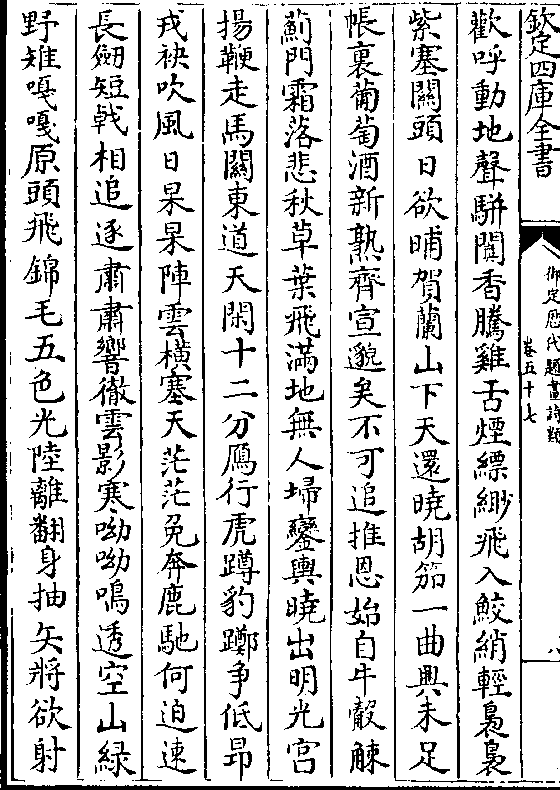 欽定四庫全書
御定歷代題畫詩類
卷五十七
八
歡呼動地聲駢闐香騰雞舌煙縹緲飛入鮫綃輕裊裊
紫塞關頭日欲晡賀蘭山下天還曉胡笳一曲興未足
帳裏葡萄酒新熟齊宣邈矣不可追推恩始自牛觳觫
薊門霜落悲秋草葉飛滿地無人埽鑾輿曉出明光宮
揚鞭走馬關東道天閑十二分鴈行虎蹲豹躑争低昂
戎袂吹風日杲杲陣雲橫塞天茫茫兔奔鹿馳何迫速
長劒短戟相追逐肅肅響徹雲影寒呦呦鳴透空山緑
野雉嘎嘎原頭飛錦毛五色光陸離翻身抽矢將欲射